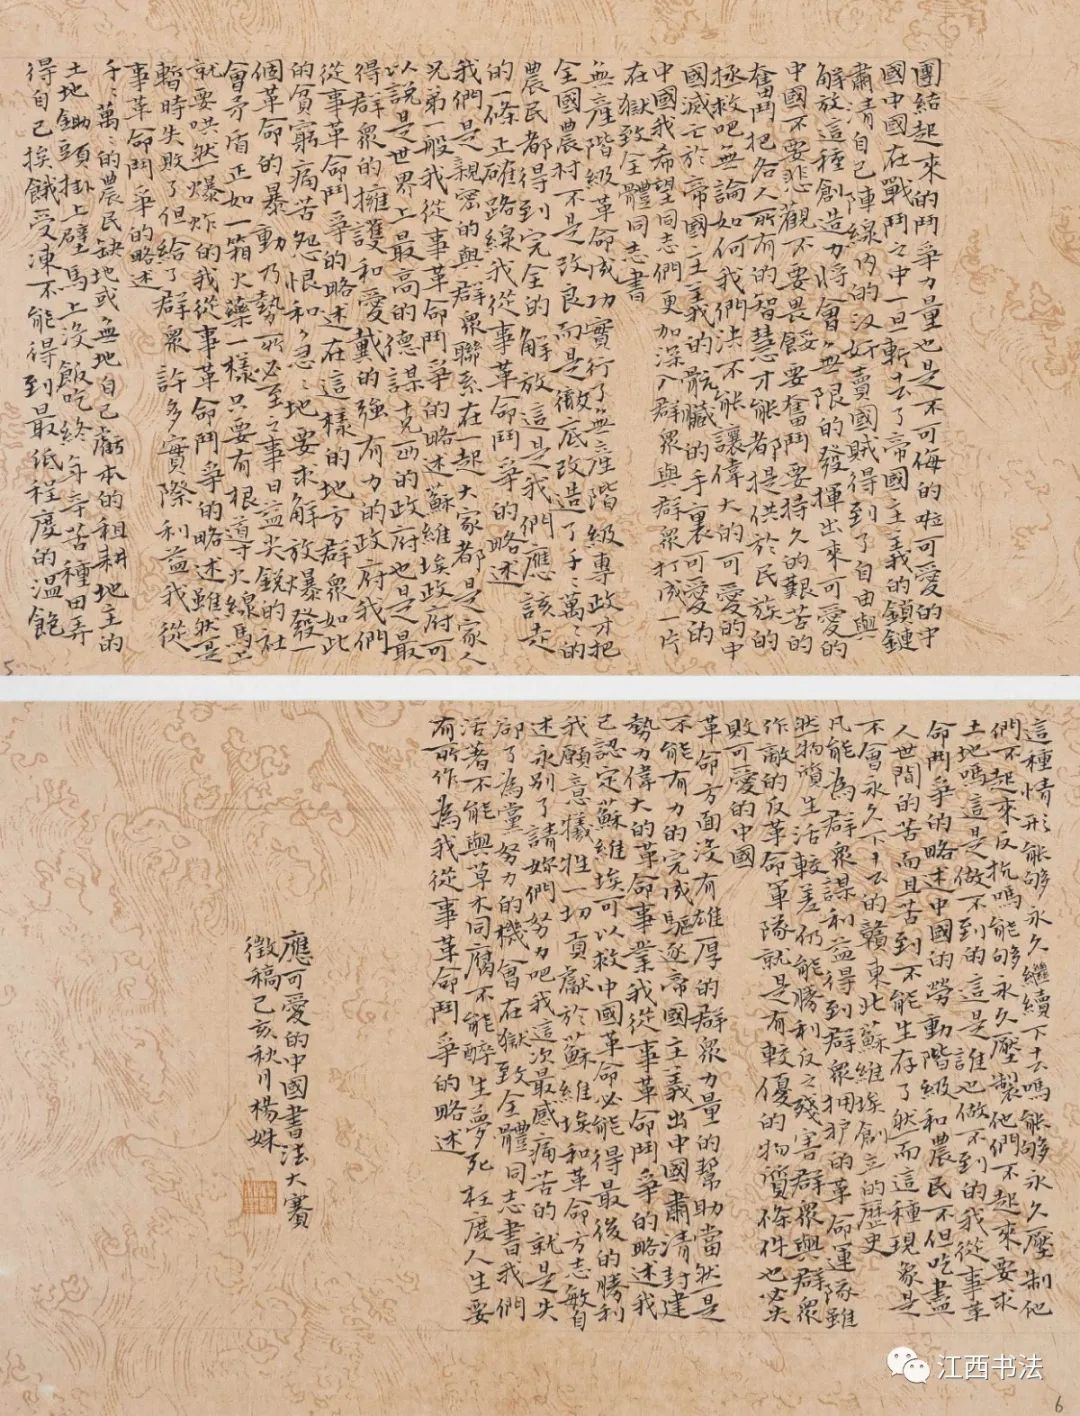 團結起來的鬥爭力量也是不可侮的啦可愛的中
國中國在戰鬥之中一旦斬去了帝國主義的鎖鏈
肅清自己陣線內的汉奸賣國賊得到了自由與
解放這種創造力將會無限的發揮出來可愛的
中國不要悲觀不要畏餒要奮鬥要持久的艱苦的
奮鬥把各人所有的智慧才能都提供於民族的
拯救吧無論如何我們决不能讓偉大的可愛的中
國滅亡於帝國主義的骯臟的手裏可愛的
中國我希望同志們更加深入群衆與群衆打成一片
在獄致全體同志書
無産階級革命成功實行了無産階級專政才把
全國農村不是改良而是徹底改造了千〻萬〻的
農民都得到完全的解放這是我們應該走
的一條正確路線我從事革命鬥爭的略述
我們是親密的與群衆聯系在一起大家都是家人
兄弟一般我從事革命鬥爭的略述蘇維埃政府可
以說是世界上最高的德謨克西的政府也是最
得群衆的擁護和愛戴的強有力的政府我們
從事革命鬥爭的略述在這樣的地方群衆如此
的貧窮痛苦怨恨和急〻地要求解放爆發一
個革命的暴動乃勢所必至之事日益尖銳的社
會矛盾正如一箱火藥一樣只要有根導火線馬上
就要哄然爆炸的我從事革命鬥爭的略述雖然是
暫時失敗了但給了群衆許多實際利益我從
事革命鬥爭的略述
千〻萬〻的農民缺地或無地自己虧本的租耕地主的
土地鋤頭掛上壁馬上沒飯吃終年辛苦種田弄
得自己挨餓受凍不能得到最低程度的溫飽
這種情形能够永久繼續下去嗎能够永久壓制他
們不起來反抗嗎能够永久壓製他們不起來要求
土地嗎這是做不到的這是誰也做不到的我從事革
命鬥爭的略述中國的勞動階級和農民不但吃盡
人世間的苦而且苦到不能生存了然而這種現象是
不會永久下去的贛東北蘇維埃創立的歷史
凡能為群衆謀利益得到群衆拥护的革命運隊雖
然物質生活較差仍能勝利反之殘害群衆與群衆
作敵的反革命軍隊就是有較優的物質條件也必失
敗可愛的中國
革命方面沒有雄厚的群衆力量的幫助當然是
不能有力的完成驅逐帝國主義出中國肅清封建
勢力偉大的革命事業我從事革命鬥爭的略述我
己認定蘇維埃可以救中國革命必能得最後的勝利
我願意犧牲一切貢獻於蘇維埃和革命方志敏自
述永別了請妳們努力吧我這次最感痛苦的就是失
卻了為黨努力的機會在獄致全體同志書我們
活著不能與草木同腐不能醉生夢死枉度人生要
有所作為我從事革命鬥爭的略述
應可愛的中國書法大賽
徵稿己亥秋月楊姝
江西书法
6